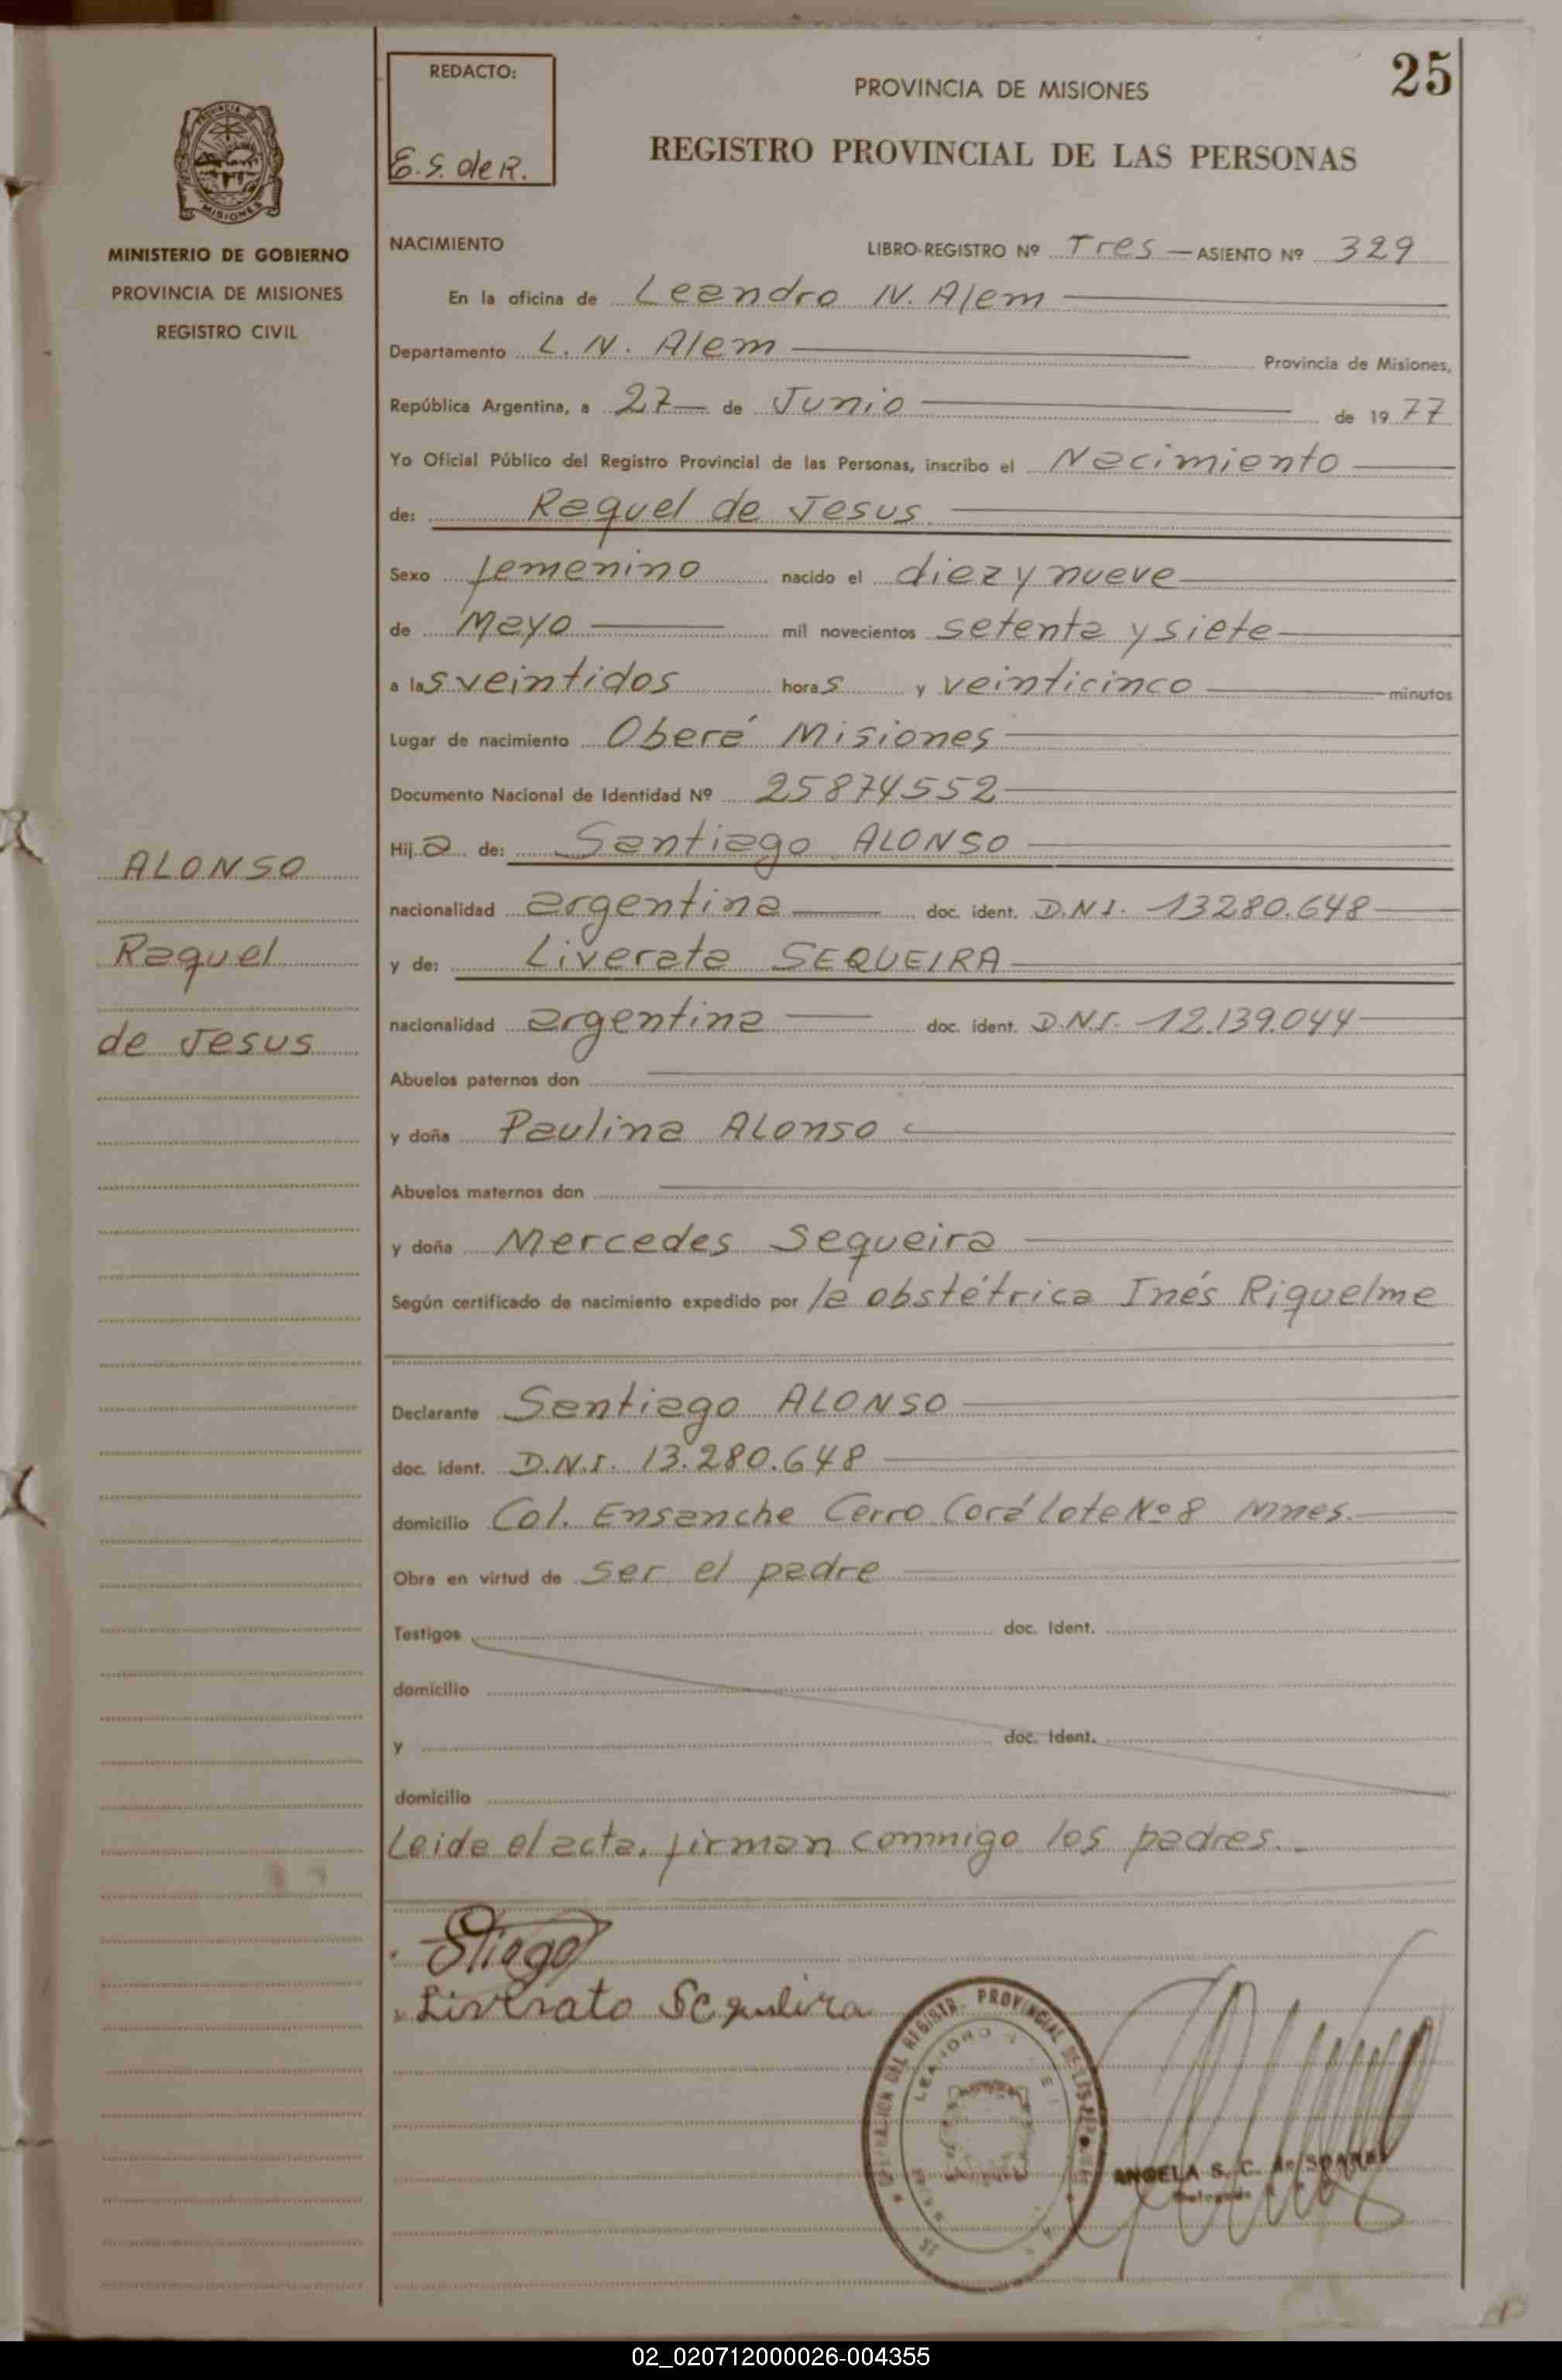 25
REDACTO:
E.S. de R.
PROVINCIA DE MISIONES
REGISTRO PROVINCIAL DE LAS PERSONAS
MISIONES
MINISTERIO DE GOBIERNO
PROVINCIA DE MISIONES
REGISTRO CIVIL
ALONSO
Raquel
de Jesus
NACIMIENTO LIBRO-REGISTRO Nº Tres — ASIENTO Nº 329
En la oficina de Leandro N. Alem
Departamento L. N. Alem Provincia de Misiones,
República Argentina, a 27 de Junio de 1977
Yo Oficial Público del Registro Provincial de las Personas, inscribo el Nacimiento
de: Raquel de Jesus
Sexo femenino nacido el diez y nueve
de Mayo mil novecientos setenta y siete
a las veintidos horas y veinticinco minutos
Lugar de nacimiento Oberá Misiones
Documento Nacional de Identidad Nº 25874552
Hija de: Santiago ALONSO
nacionalidad argentina doc. ident. D.N.I. 13280.648
y de: Liverata SEQUEIRA
nacionalidad argentina doc. ident. D.N.I. 12.139.044
Abuelos paternos don
y doña Paulina Alonso
Abuelos maternos don
y doña Mercedes Sequeira
Según certificado de nacimiento expedido por la obstétrica Inés Riquelme
Declarante Santiago ALONSO
doc. ident. D.N.I. 13.280.648
domicilio Col. Ensanche Cerro Corá Lote Nº 8 Mnes.
Obra en virtud de ser el padre
Testigos doc. Ident.
domicilio
y doc. Ident.
domicilio
Leida el acta, firman conmigo los padres.
Stiago
Liverato Sequeira
DEL REGISTR. PROVINCIAL DE LAS
LEANDRO
ANGELA S. C. de
02_020712000026-004355